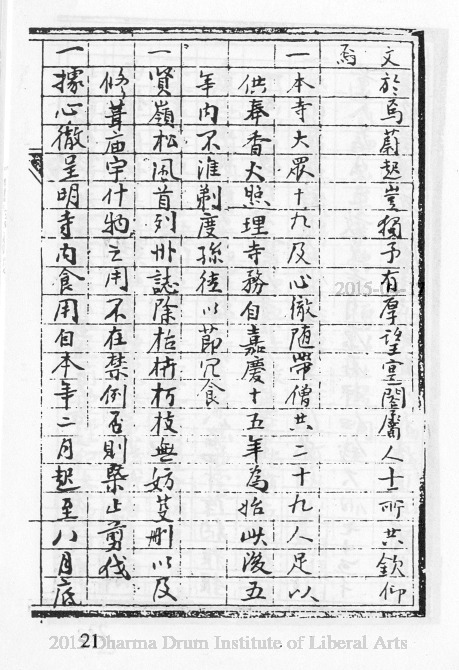 文於焉蔚起豈獨予有厚望實闔屬人士所共欽仰
焉
一本寺大眾十九及心徹随帶僧共二十九人足以
供奉香火照理寺務自嘉慶十五年為始此後五
年內不准剃度孫徒以節冗食
一賢嶺松風首列卅誌除枯枿朽枝無妨芟刪以及
修葺庙宇什物之用不在禁例否則槩止剪伐
一據心徹呈明寺內食用自本年二月起至八月底
2015-0
21
2015 Dharma Drum Institute of Liberal Arts